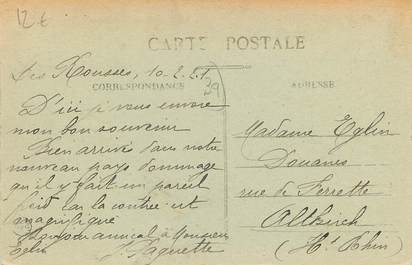 12 €
CARTE POSTALE
Les Rousses, 10-2-21
CORRESPONDANCE
39
ADRESSE
D'ici je vous envoie
mon bon souvenir
Bien arrivé dans notre
nouveau pays dommage
qu'il y fait un pareil
froid car la contrée est
magnifique
Bonjour amical à Monsieur
Eglin
J. Paquette
Madame Eglin
Douanes
rue de Ferrette
Altkirch
(Ht Rhin)